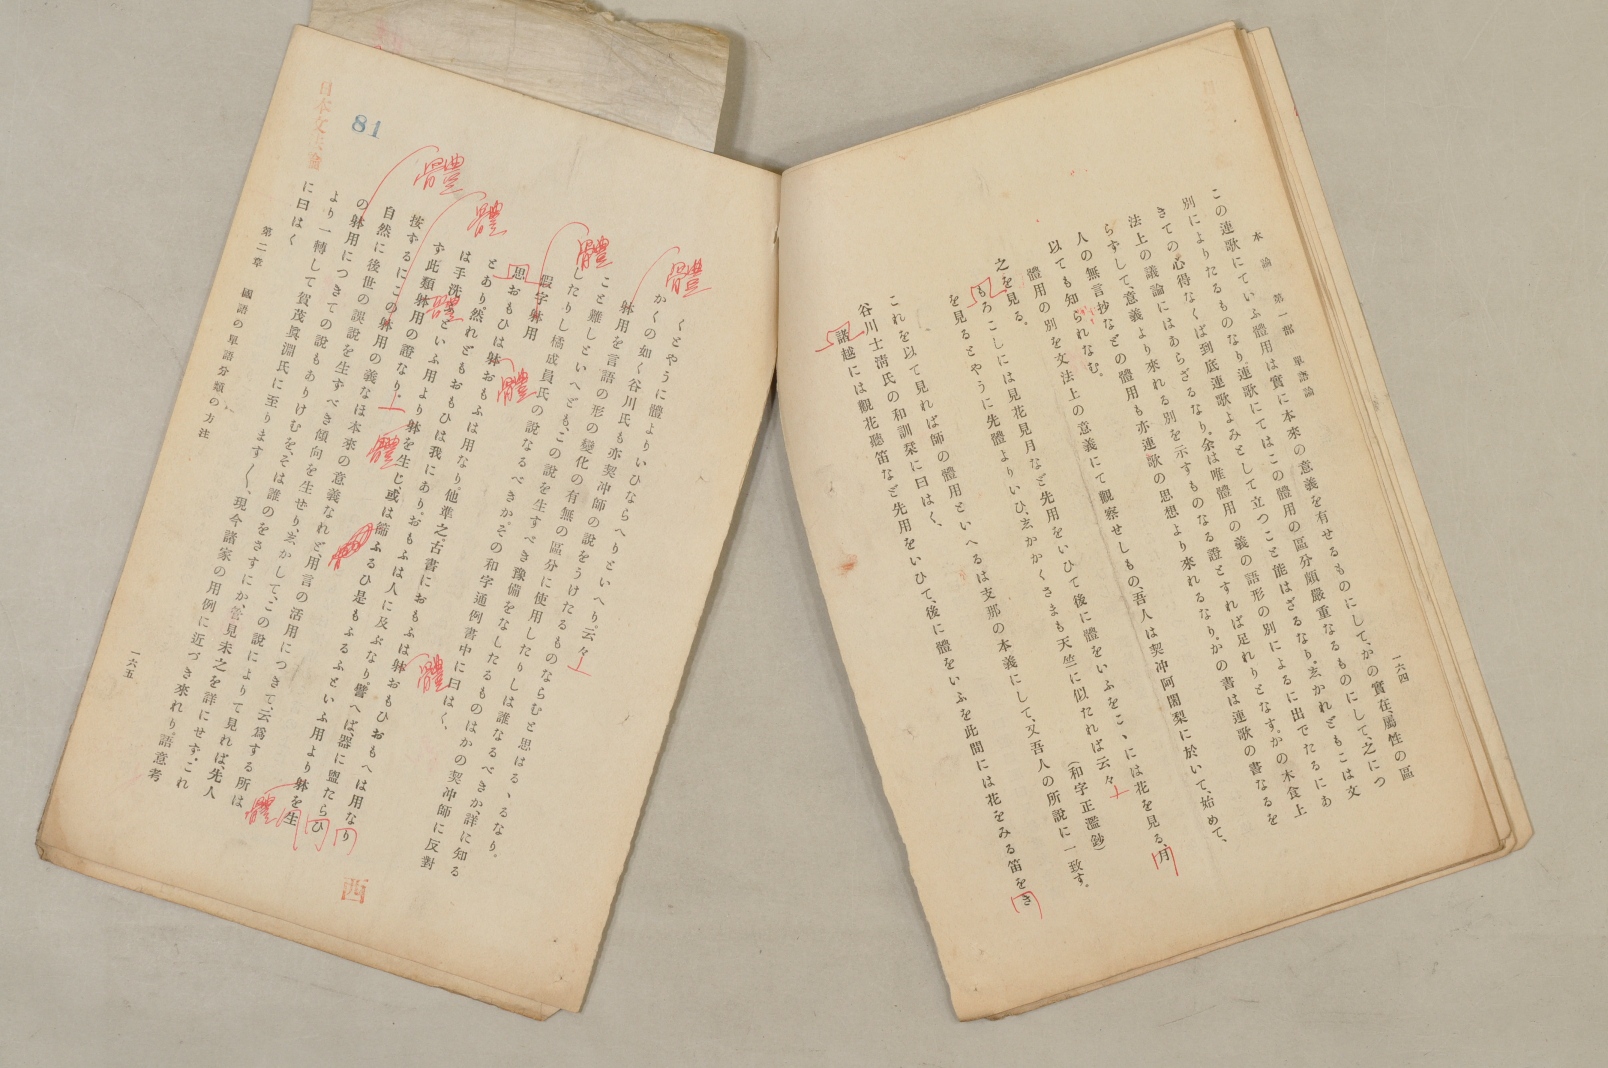 本論 第一部 單語論
一六四
この連歌にていふ體用は實に本來の意義を有せるものにして、かの實在、屬性の區
別によりたるものなり。連歌にてはこの體用の區分頗嚴重なるものにして、之につ
きての心得なくば到底連歌よみとして立つこと能はざるなり。志かれどもこは文
法上の議論にはあらざるなり。余は唯體用の義の語形の別によるに出でたるにあ
らずして、意義より來れる別を示すものなる證とすれば足れりとなす。かの木食上
人の無言抄などの體用も亦連歌の思想より來れるなり。かの書は連歌の書なるを
以ても知られなむ。
體用の別を文法上の意義にて觀察せしもの、吾人は契冲阿闍梨に於いて、始めて、
之を見る。
もろこしには見花見月など先用をいひて後に體をいふをこゝには花を見る、月
を見るとやうに先體よりいひ、志かかくさまも天竺に似たれば云々(和字正濫鈔)
これを以て見れば師の體用といへるは支那の本義にして、又吾人の所說に一致す。
谷川士淸氏の和訓栞に曰はく、
諸越には觀花聽笛など先用をいひて、後に體をいふを此間には花をみる笛をき
くとやうに體よりいひならへりといへり。云々
かくの如く谷川氏も亦契冲師の說をうけたるものならむと思はるゝなり。
躰用を言語の形の變化の有無の區分に使用したりしは誰なるべきか、詳に知る
こと難しといへども、この說を生すべき豫備をなしたるものはかの契冲師に反對
したりし橘成員氏の說なるべきか。その和字通例書中に曰はく、
假字躰用
思おもひは躰おもふは用なり。他準之。古書におもふは躰おもひおもへは用なり
とあり。然れどもおもひは我にあり。おもふは人に及ぶなり。譬へば器に盥たらひ
は手洗といふ用より躰を生じ、或は篩ふるひ是もふるふといふ用より躰を生
す此類躰用の證なり。
按ずるにこの躰用の義なほ本來の意義なれど、用言の活用につきて、云爲する所は
自然に後世の誤說を生ずべき傾向を生せり。志かして、この說によりて見れば、先人
の躰用につきての說もありけむを、そは誰のをさすにか、管見未之を詳にせず。これ
より一轉して賀茂眞淵氏に至りますく、現今諸家の用例に近づき來れり。語意考
に曰はく
第二章 國語の單語分類の方法
一六五
81
西
體
體
體
體
體
體
體
體
體